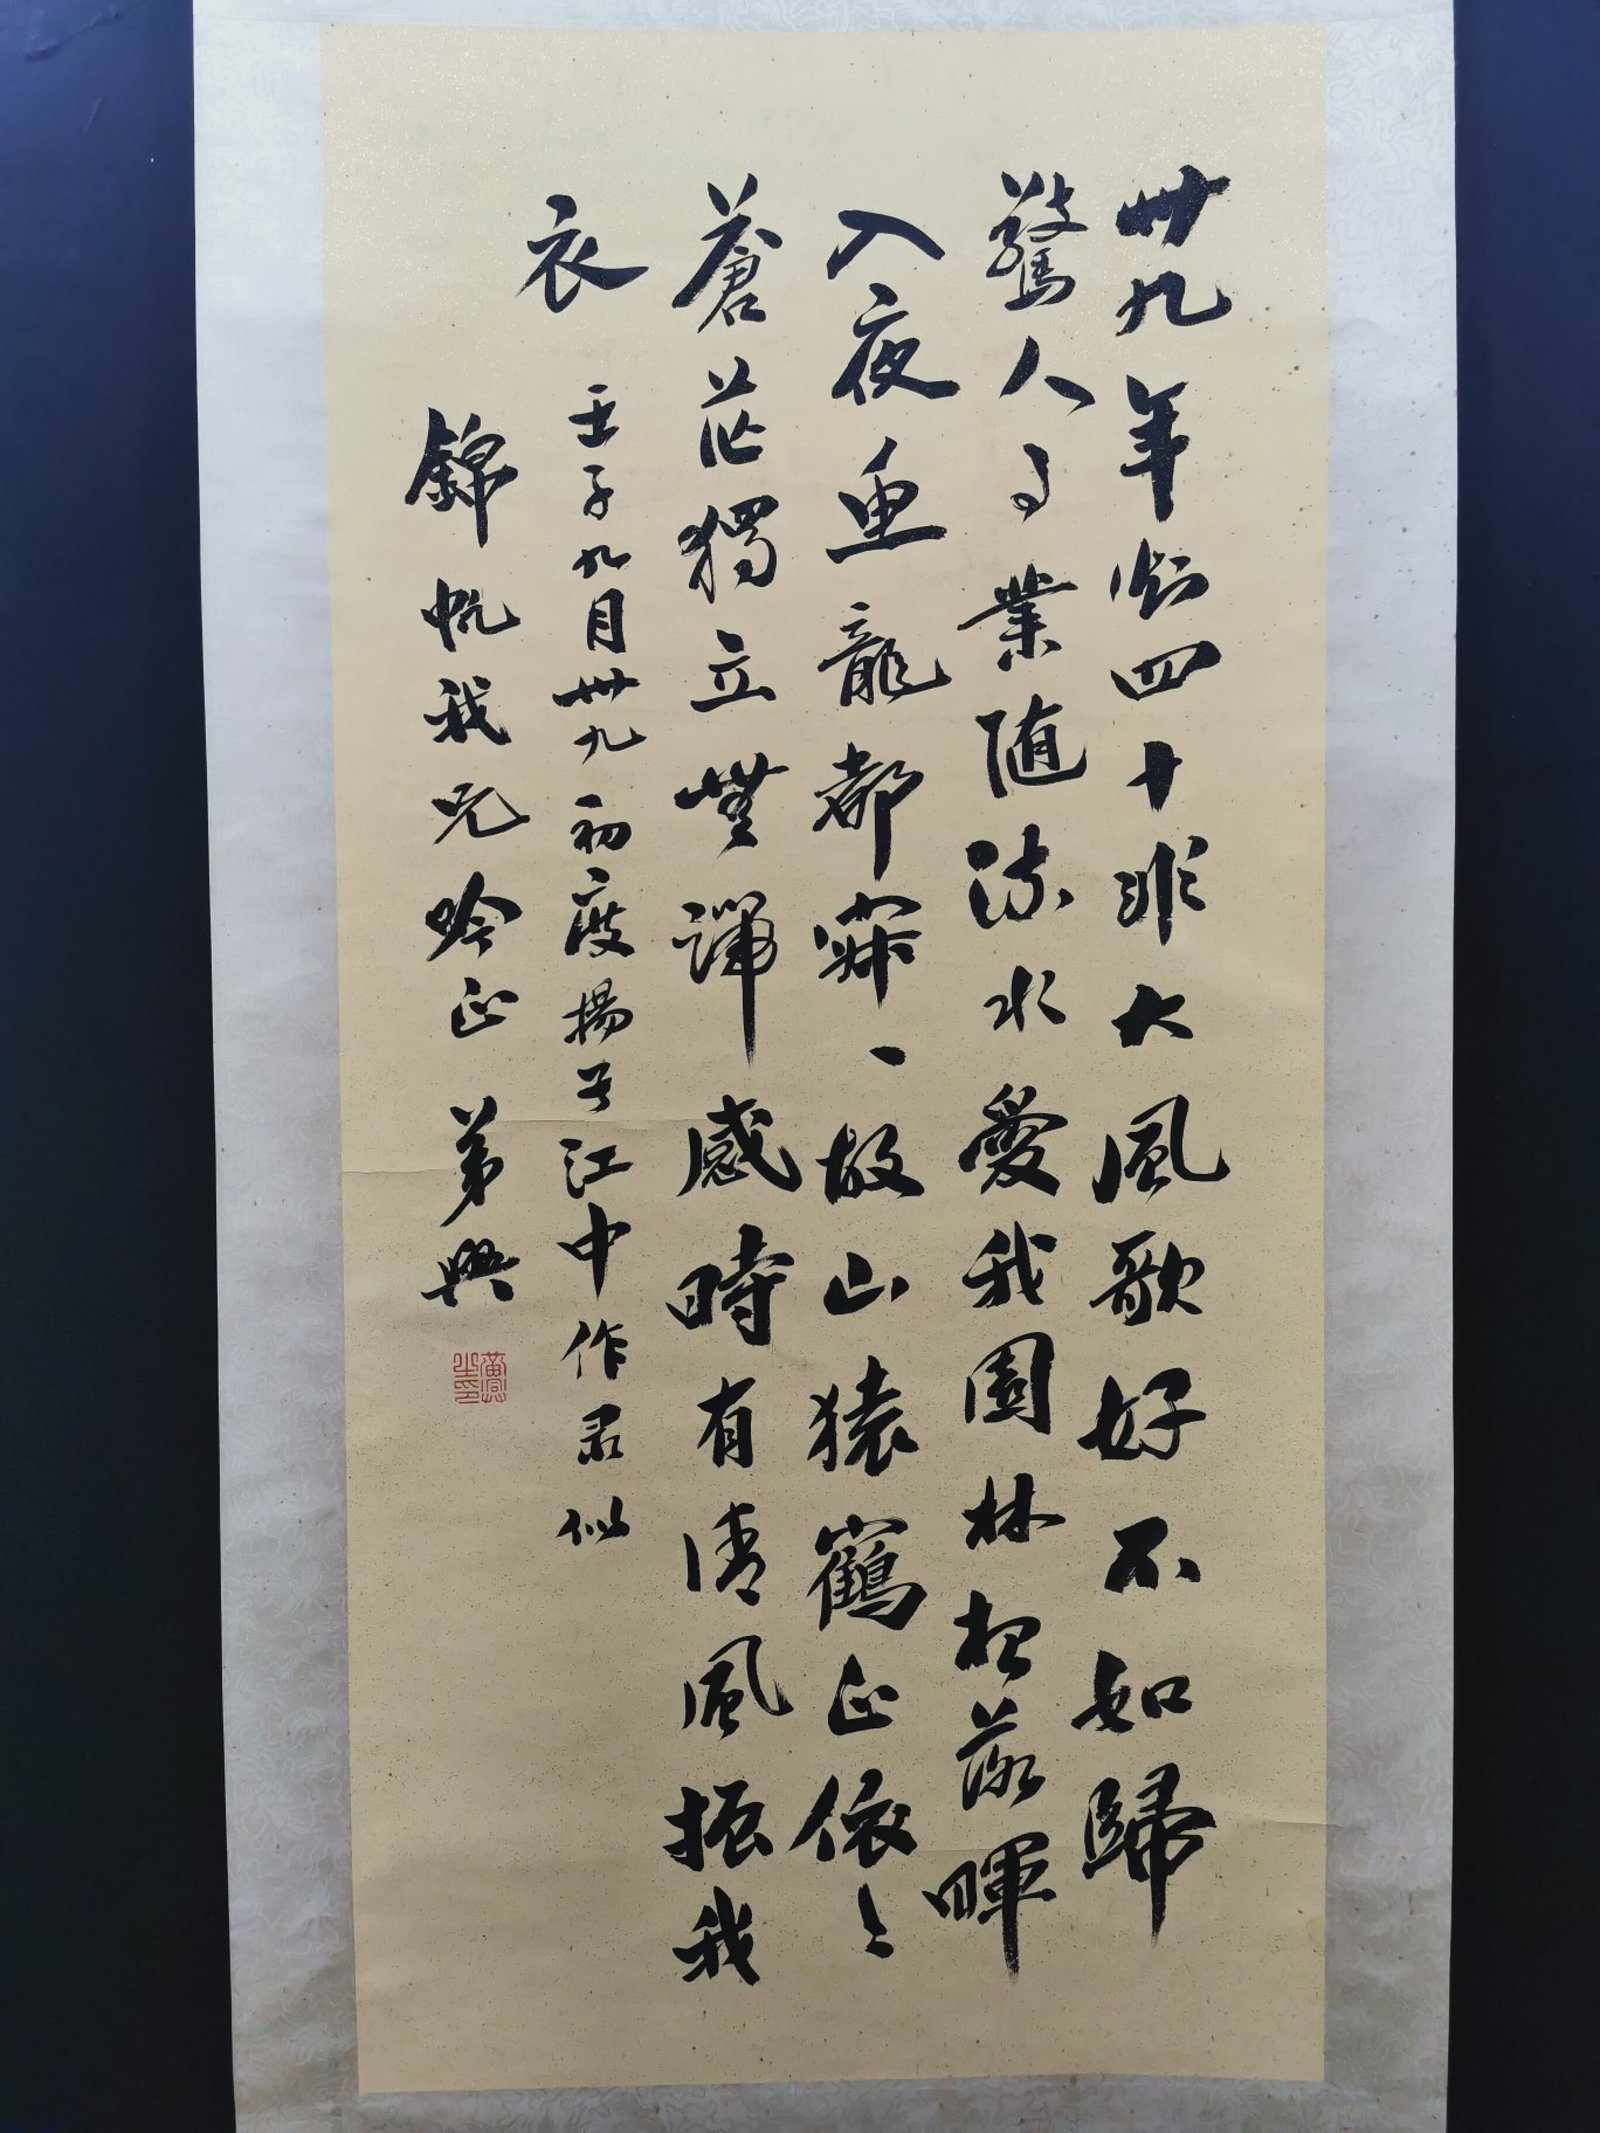 卅九年知四十非大風歌好不如歸
驚人事業随流水愛我園林想落暉
入夜魚龍都寂、故山猿鶴正依〻
蒼茫獨立無端感時有清風振我
衣
壬子九月卅九初度揚子江中作录似
錦帆我兄吟正 弟興